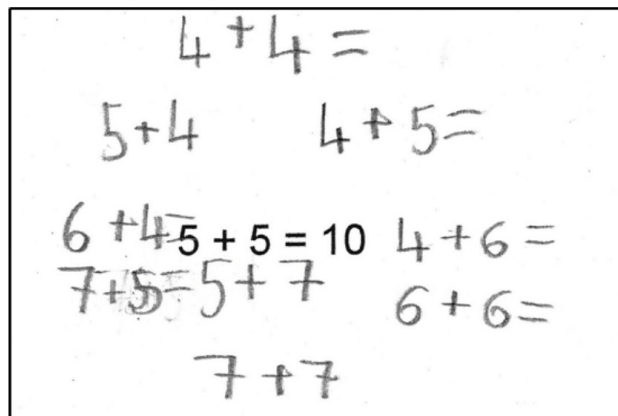 4 + 4 =
5 + 4 4 + 5 =
6 + 4 = 5 + 5 = 10 4 + 6 =
7 + 5 = 5 + 7 6 + 6 =
7 + 7